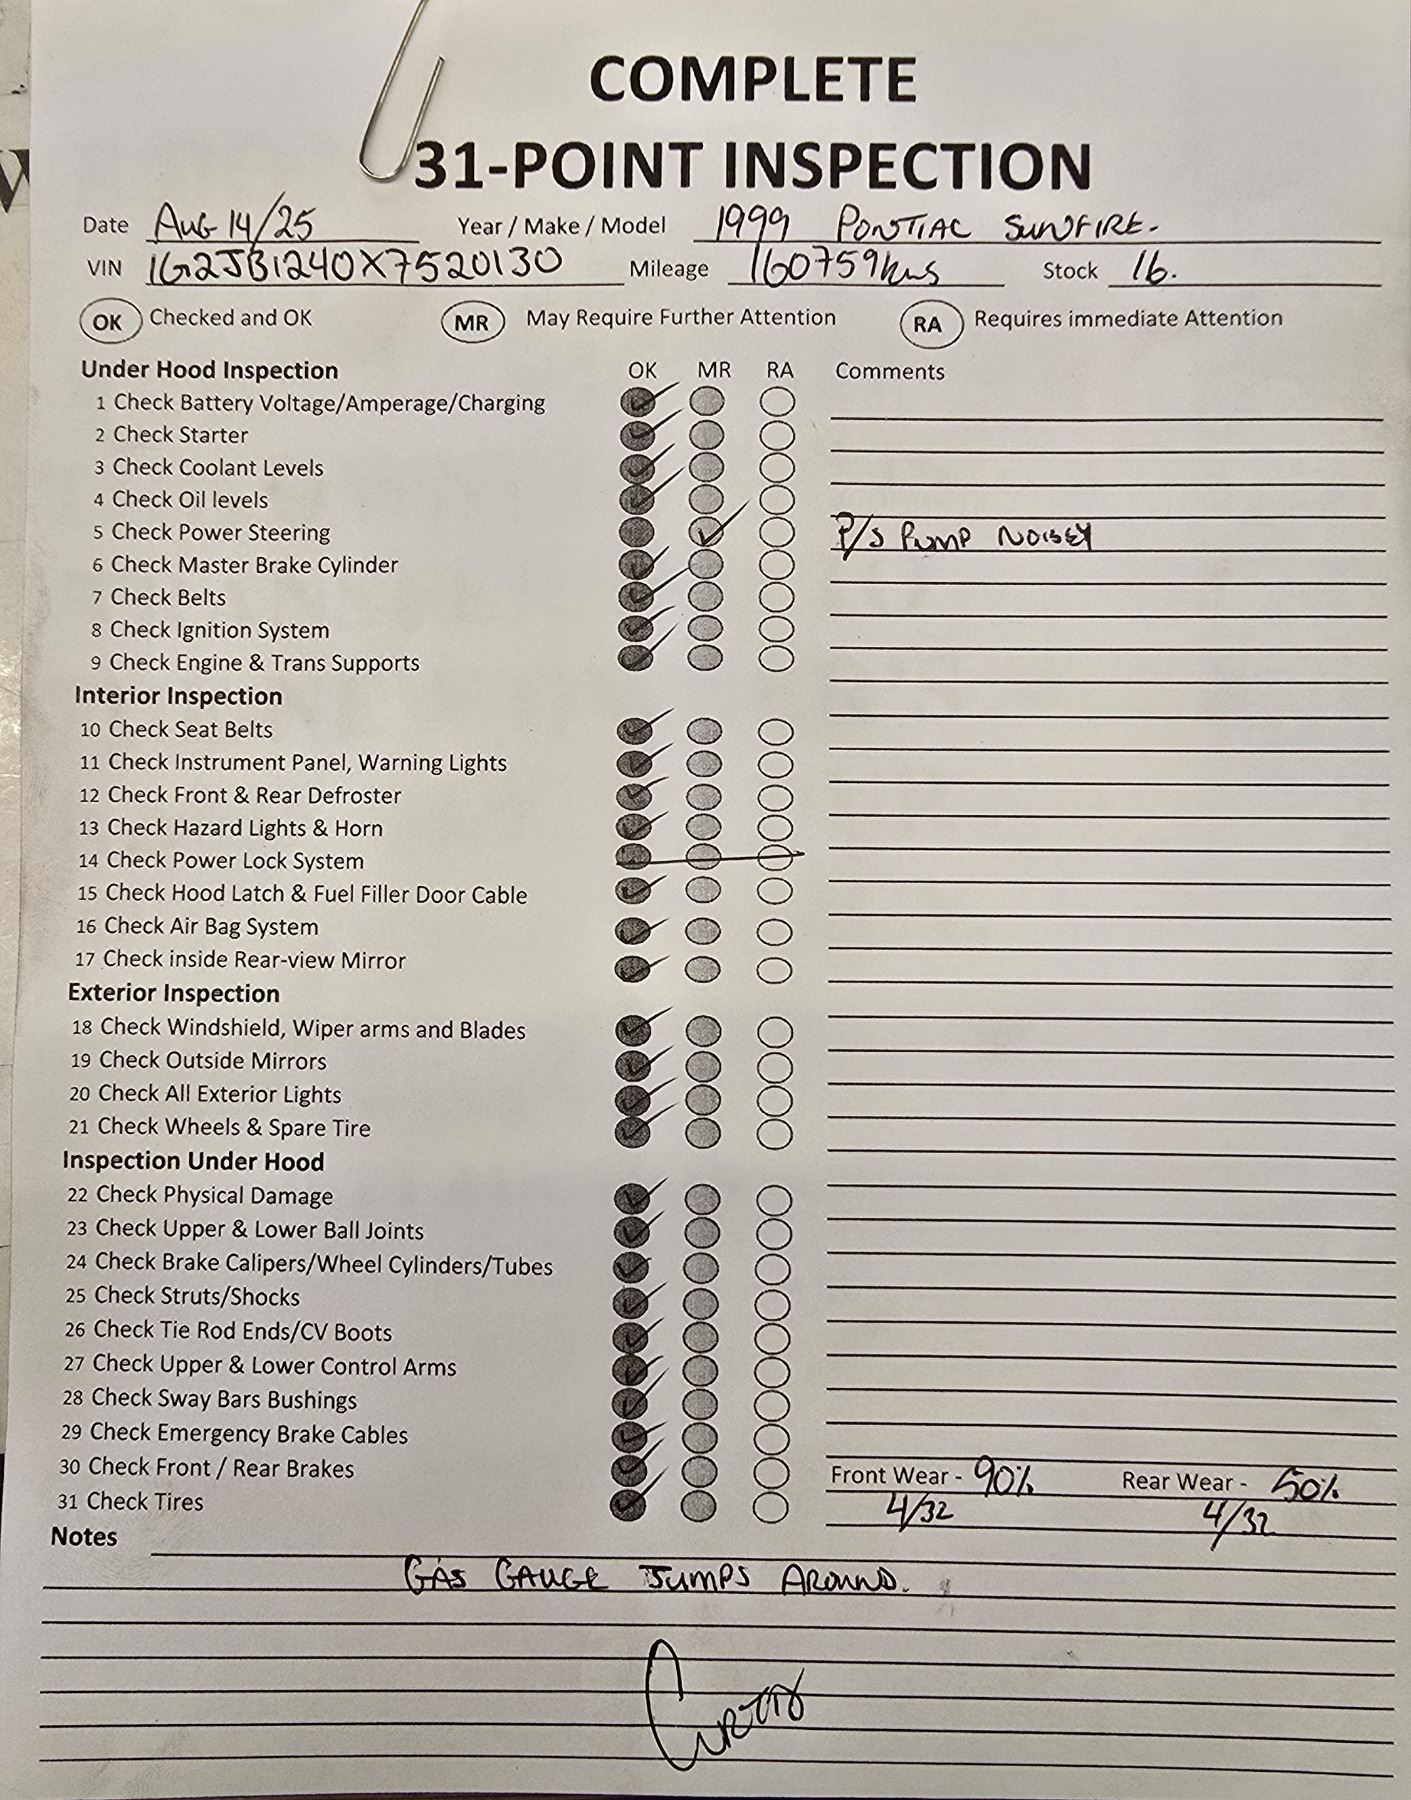 COMPLETE
31-POINT INSPECTION
Date Aug 14/25 Year / Make / Model 1999 PONTIAC SUNFIRE.
VIN 1G2JB1240X7520130 Mileage 160759kms Stock 16.
OK Checked and OK MR May Require Further Attention RA Requires immediate Attention
Under Hood Inspection OK MR RA Comments
1 Check Battery Voltage/Amperage/Charging
2 Check Starter
3 Check Coolant Levels
4 Check Oil levels
5 Check Power Steering P/S PUMP NOISEY
6 Check Master Brake Cylinder
7 Check Belts
8 Check Ignition System
9 Check Engine & Trans Supports
Interior Inspection
10 Check Seat Belts
11 Check Instrument Panel, Warning Lights
12 Check Front & Rear Defroster
13 Check Hazard Lights & Horn
14 Check Power Lock System
15 Check Hood Latch & Fuel Filler Door Cable
16 Check Air Bag System
17 Check inside Rear-view Mirror
Exterior Inspection
18 Check Windshield, Wiper arms and Blades
19 Check Outside Mirrors
20 Check All Exterior Lights
21 Check Wheels & Spare Tire
Inspection Under Hood
22 Check Physical Damage
23 Check Upper & Lower Ball Joints
24 Check Brake Calipers/Wheel Cylinders/Tubes
25 Check Struts/Shocks
26 Check Tie Rod Ends/CV Boots
27 Check Upper & Lower Control Arms
28 Check Sway Bars Bushings
29 Check Emergency Brake Cables
30 Check Front / Rear Brakes Front Wear - 90% Rear Wear - 50%
31 Check Tires 4/32 4/32
Notes
GAS GAUGE JUMPS AROUND.